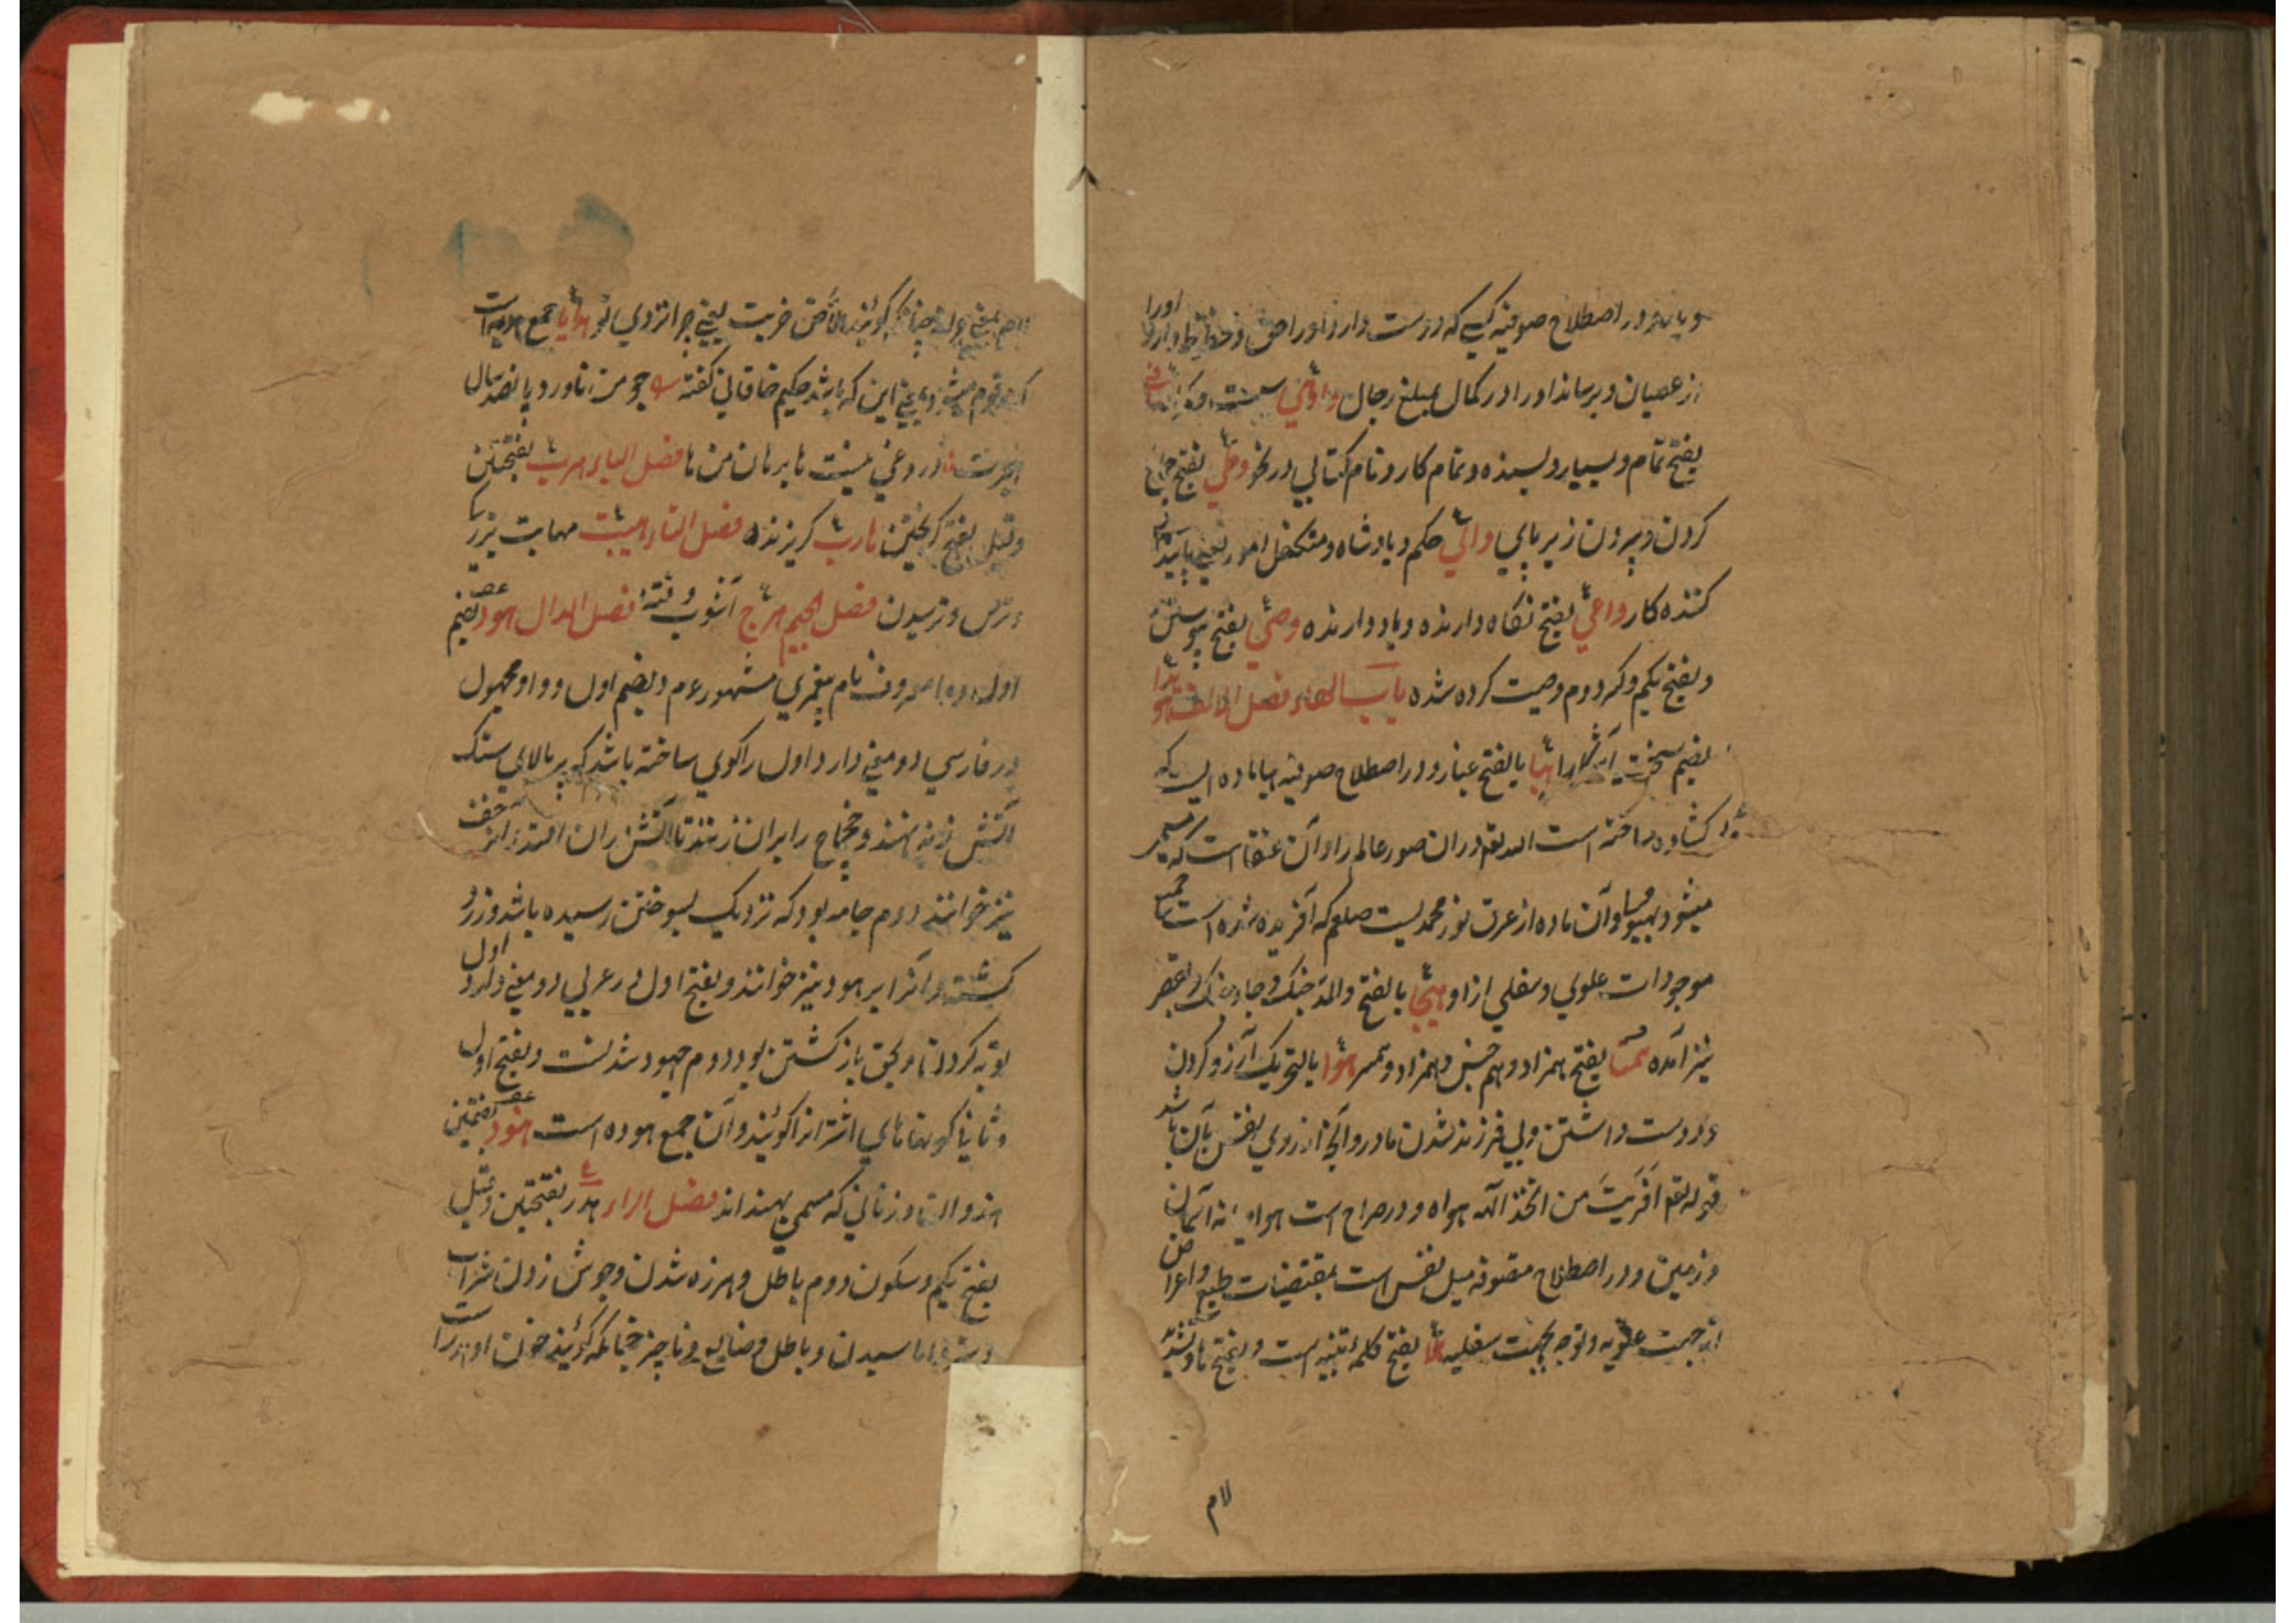 و یا در اصطلاح صوفیه کسی که دوست دارد او را حق و دارد او را
از عصیان و برساند او را در کمال مبلغ رجال واهی سست
بفتح تمام و بسیار و بسنده و تمام کار و نام کتابی در نحو وطی بفتح
کردن و سپردن زیر پای والی حاکم و پادشاه و متکفل امور یعنی
کننده کار واعی بفتح نگاه دارنده و یاد دارنده وصی بفتح پیوستن
و بفتح یکم و کسر دوم وصیت کرده شده باب الهاء فصل الالف
بضم سخت آشکارا هبا بالفتح غبار و در اصطلاح صوفیه هبا ماده ایست که
کشاده ساخته است الله تعم دران صور عالم را و آن عنقا است که مسمی
میشود بهیولا و آن ماده از عرق نور محمدیست صلعم که آفریده شده است
موجودات علوی و سفلی ازو هیجا بالفتح والمد جنک و جای جنک و بقصر
نیز آمده همتا بفتح همزاد و هم جنس و همزاد و همسر هوا بالتحریک آرزو کردن
و دوست داشتن و بی فرزند شدن مادر و آنچه از روی نفس بآن باشد
قوله تعم افریت من اتخذ الهه هواه و در صراح است هوا میانه آسمان
و زمین و در اصطلاح متصوفه میل نفس است بمقتضیات طبع و اعراض
از جهت علویه و توجه بجهت سفلیه هلا بفتح کلمه تنبیه است و بفتح ها و تشدید
لام
لام بمعنی چرا چنانکه گویند هلا ضربت یعنی چرا نزدی تو هدایا جمع هدیه است
که مرقوم میشود بمعنی این که باشد حکیم خاقانی گفته چو من ناورد پانصد سال
هجرت دروغی نیست ها برهان من ها فصل الباء هرب بفتحتین
و قیل بفتح کریختن هارب کریزنده فصل التاء هیبت مهابت بزرکی
و ترس و ترسیدن فصل الجیم هرج آشوب و فتنه فصل الدال هود بضم
اول و واو معروف نام پیغمبری مشهور عم و بضم اول و واو مجهول
در فارسی دو معنی دارد اول را کوی ساخته باشد که بر بالای سنک
آتش زنه نهند و چخماخ را بران زنند تا آتش دران افتد و آنرا خف
نیز خوانند دوم جامه بود که نزدیک بسوختن رسیده باشد و زرد
کشته و آنرا برهود نیز خوانند و بفتح اول در عربی دو معنی دارد اول
توبه کردن و بحق باز کشتن بود دوم جهود شدنست و بفتح اول
و ثانیا کوهانهای اشتر را کویند و آن جمع هوده است هنود بضمتین
هندوان و زنانی که مسمی بهند اند فصل الراء هدر بفتحتین و قیل
بفتح یکم و سکون دوم باطل و هرزه شدن و جوش زدن شراب
و باطل و ضایع و ناچیز چنانکه کویند خون او هدر است